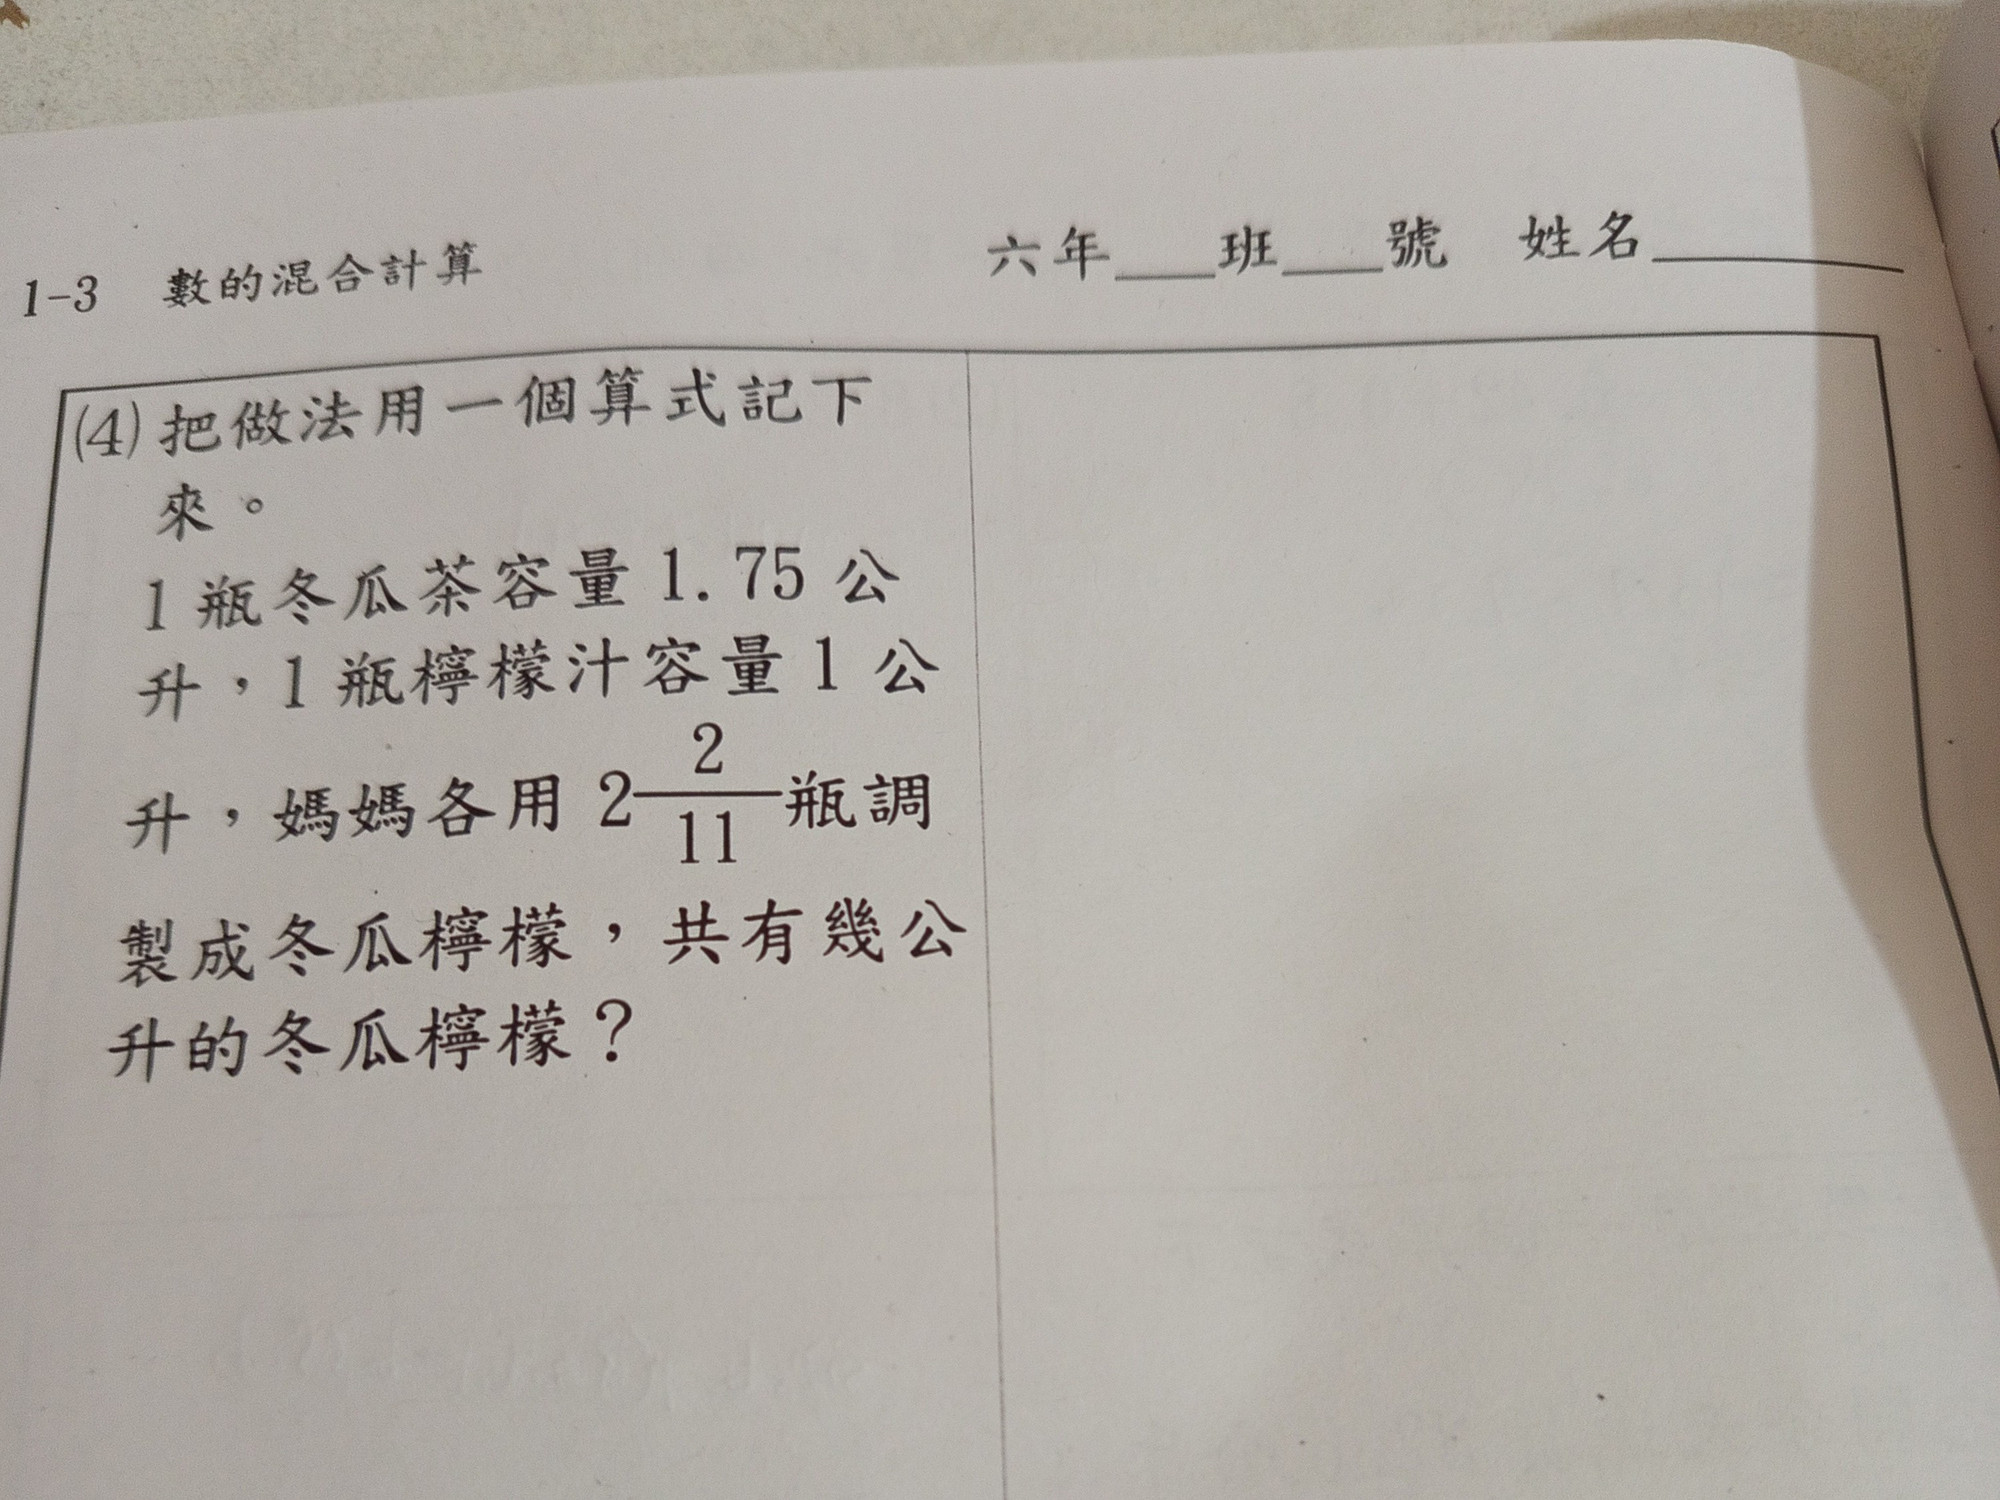 1-3 數的混合計算 六年___班___號 姓名______
(4) 把做法用一個算式記下
來。
1瓶冬瓜茶容量1.75公
升，1瓶檸檬汁容量1公
升，媽媽各用2 2/11 瓶調
製成冬瓜檸檬，共有幾公
升的冬瓜檸檬？